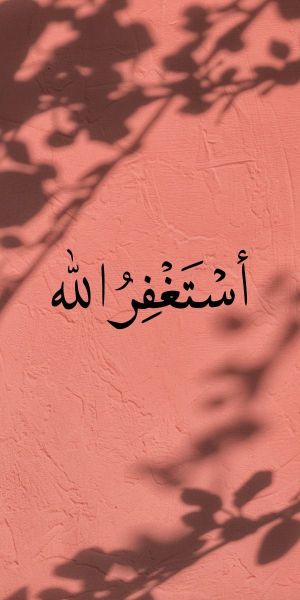 أسْتَغْفِرُ الله